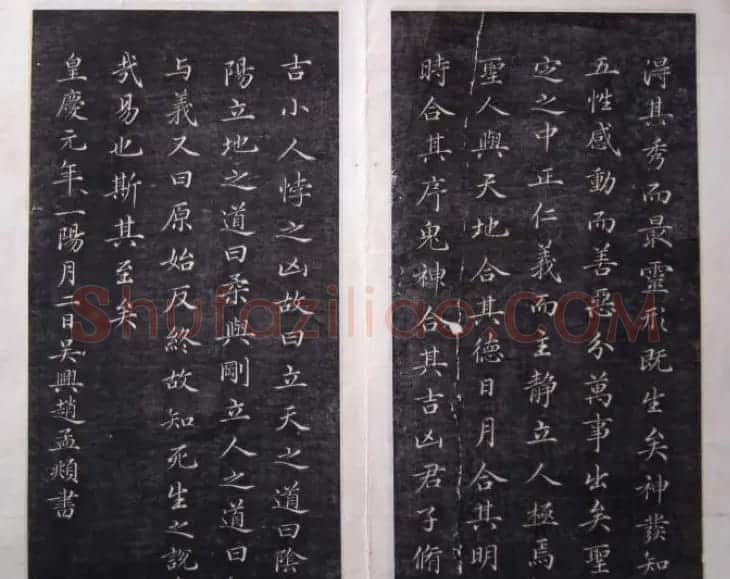 得其秀而最靈形既生矣神發知
五性感動而善惡分萬事出矣聖
定之中正仁義而主静立人極焉
聖人與天地合其德日月合其明
時合其序鬼神合其吉凶君子脩
吉小人悖之凶故曰立天之道曰陰
陽立地之道曰柔與剛立人之道曰
与義又曰原始反終故知死生之說
哉易也斯其至矣
皇慶元年一陽月二日吴興趙孟頫書
Shufaziliao.COM